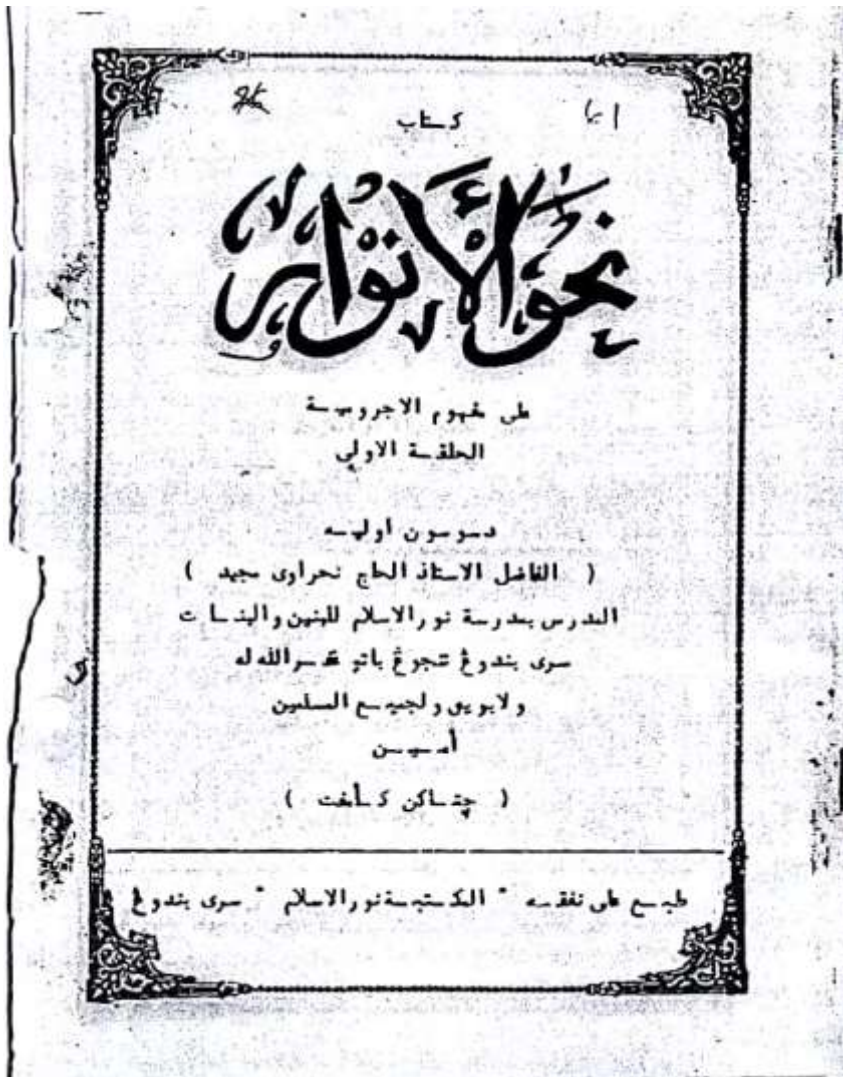 كتاب
نحو الأنوار
على مفهوم الاجرومية
الحلقة الاولى
دسوسون أوليه
( الفاضل الاستاذ الحاج نحراوى مجيد )
المدرس بمدرسة نور الاسلام للبنين والبنات
سرى بندوڠ تنجوڠ باتو غفر الله له
ولابويه ولجميع المسلمين
أميين
( چتاكن كأمفت )
طبع على نفقة " المكتبة نور الاسلام " سرى بندوڠ